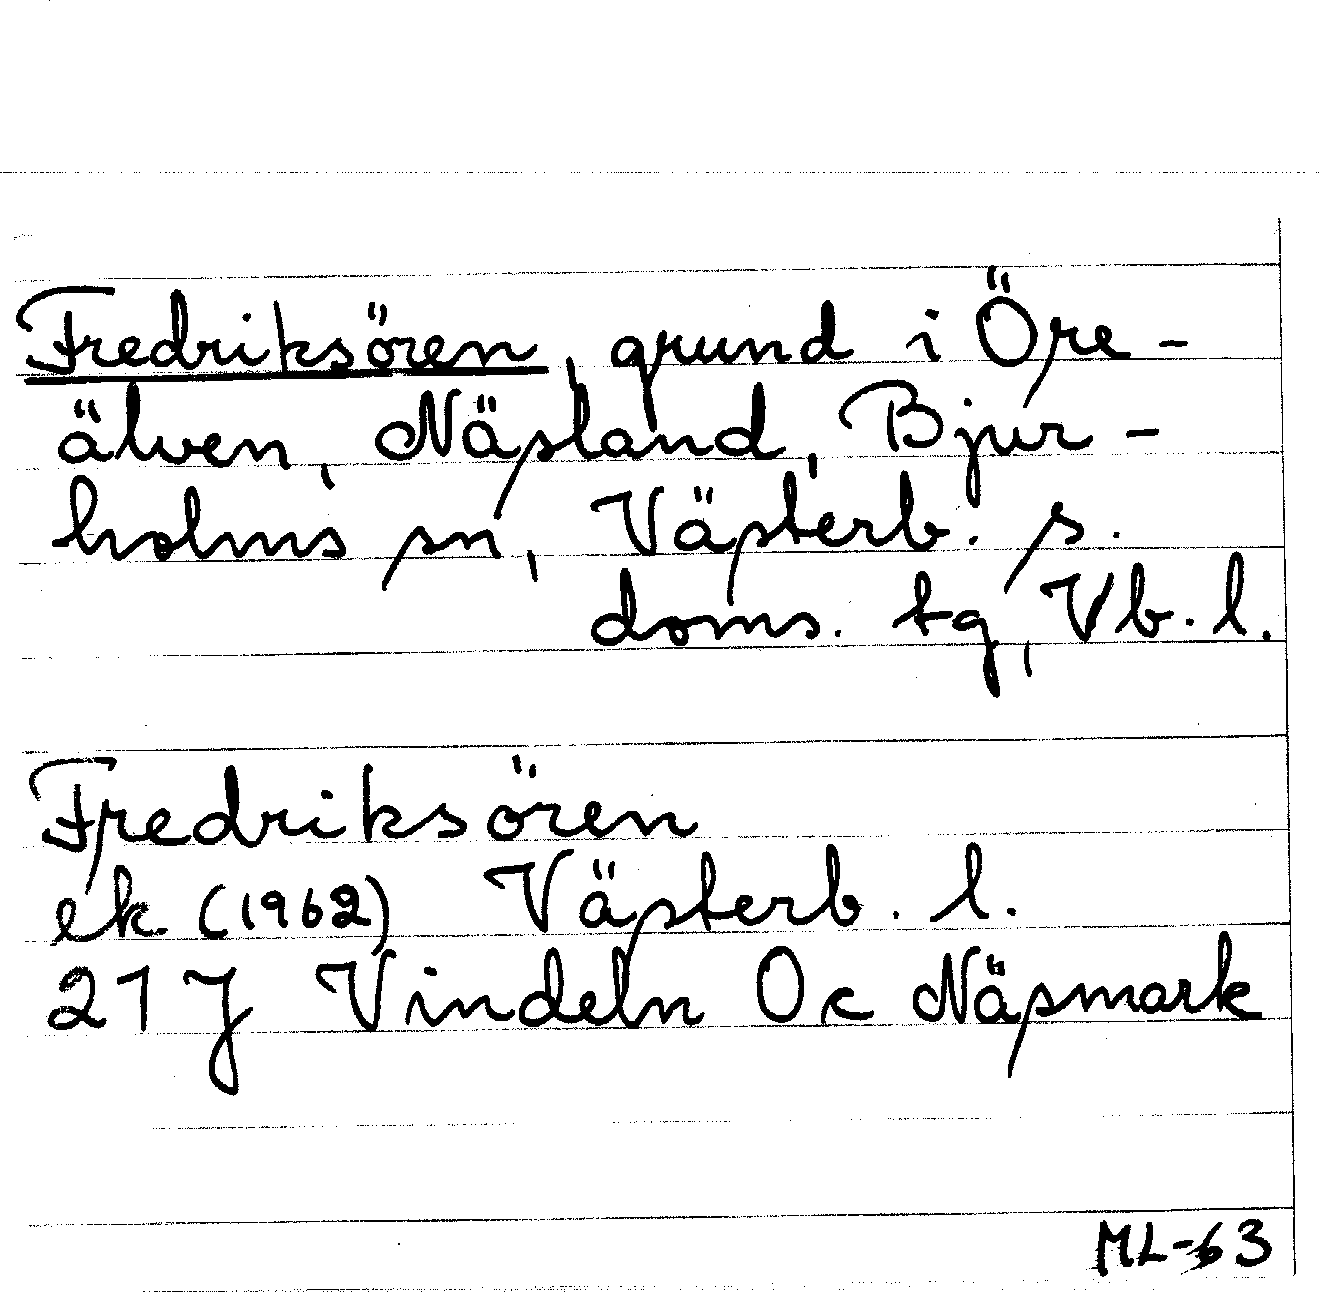 Fredriksören, grund i Öre-
älven, Näsland, Bjur-
holms sn, Västerb. s.
doms. tg, Vb. l.
Fredriksören
ek. (1962) Västerb. l.
21 J Vindeln 0c Näsmark
ML-63